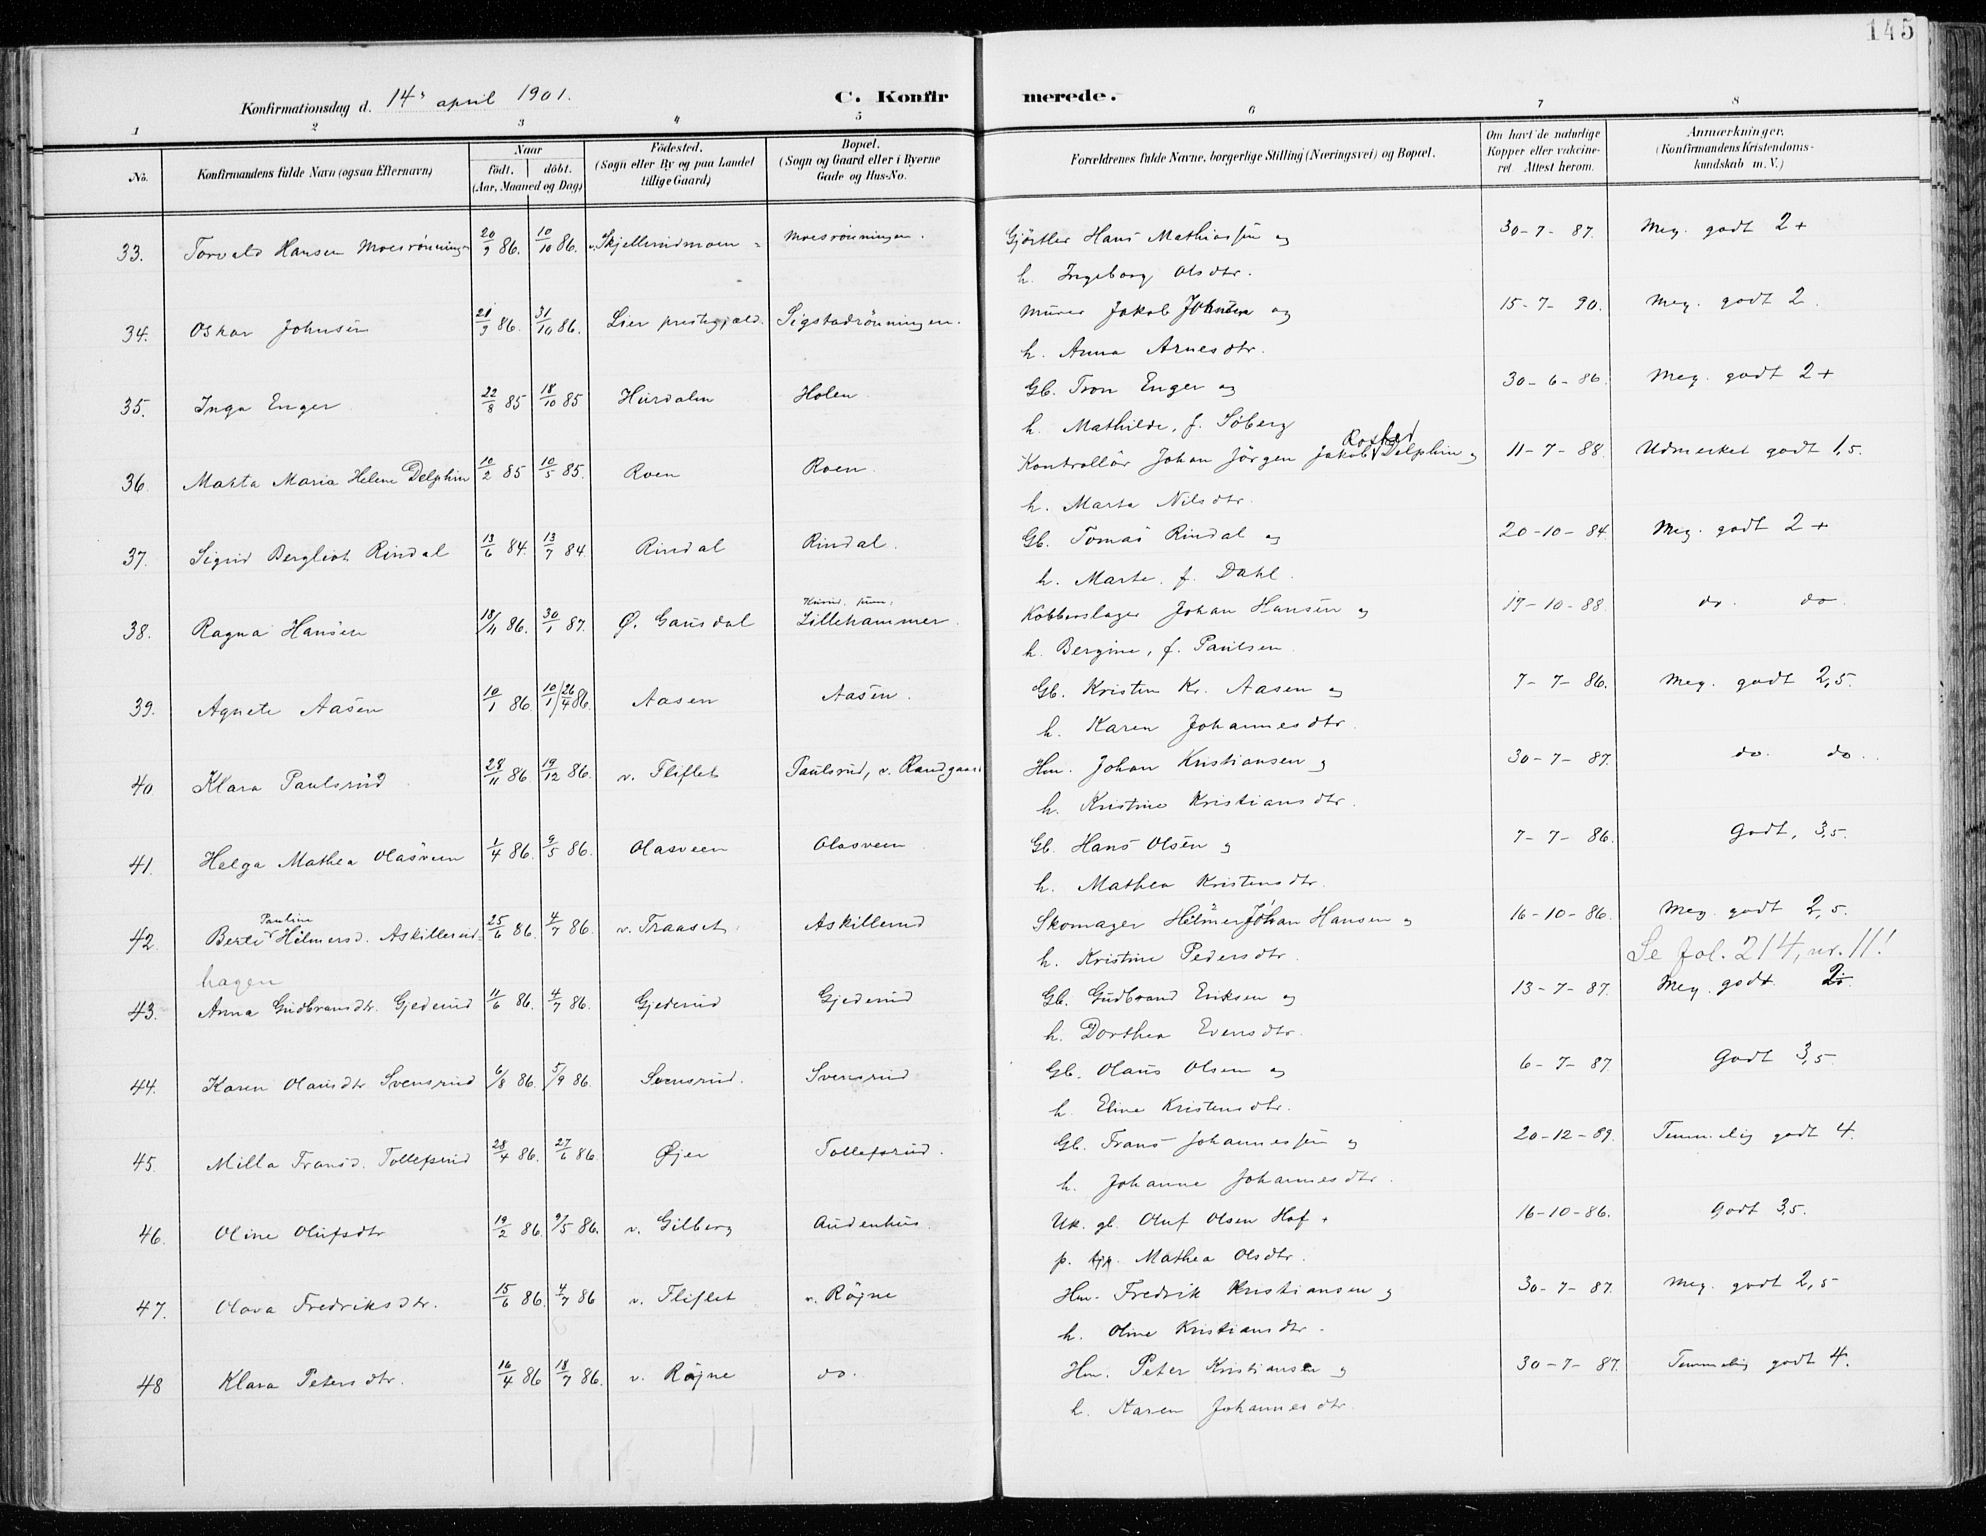 145
Konfirmationsdag d. 14de april 1901. C. Konfirmerede.
1 2 3 4 5 6 7 8
No. Konfirmandens fulde Navn (ogsaa Efternavn) Naar født. døbt. (Aar, Maaned og Dag) Fødested. (Sogn eller By og paa Landet tillige Gaard) Bopæl. (Sogn og Gaard eller i Byerne Gade og Hus-No. Forældrenes fulde Navne, borgerlige Stilling (Næringsvei) og Bopæl. Om havt de naturlige Kopper eller vaccineret. Attest herom. Anmærkninger. (Konfirmandens Kristendomskundskab m. V.)
33. Torvald Hansen Moesrönningen 20/9 86. 10/10 86. v. Skjellerudmoen Moesrönningen. Gjörtler Hans Mathiassen og 30-7-87. Meg. godt 2+
h. Ingeborg Olsdtr.
34. Oskar Johnsen 21/9 86. 31/10 86. Lier prestegjæld. Sigstadrönningen. Murer Jakob Johnsen og 15-7-90. Meg. godt 2.
h. Anna Arnesdtr.
35. Inga Enger 22/8 85 18/10 85 Hurdalen Holen. Gb. Tron Enger og 30-6-86. Meg. godt 2+
h. Mathilde, f. Söberg
36. Marta Maria Helene Delphin 10/2 85 10/5 85. Roen Roen. Kontrollör Johan Jörgen Jakob Delphin og 11-7-88. Udmerket godt 1,5.
h. Marta Nilsdtr.
37. Sigrid Bergliot Rindal 13/6 84. 13/7 84. Rindal Rindal. Gb. Tomas Rindal og 20-10-84. Meg. godt 2+
h. Marte, f. Dahl.
38. Ragna Hansen 18/11 86. 30/1 87. Ø. Gausdal Lillehammer. Kobberslager Johan Hansen og 17-10-88. do. do.
h. Bergine, f. Paulsen.
39. Agnete Aasen 10/1 86 10/1 26/4 86. Aasen Aasen. Gb. Kristen Kr. Aasen og 7-7-86. Meg. godt 2,5.
h. Karen Johannesdtr.
40 Klara Paulsrud 28/11 86 19/12 86. v. Fliflet Paulsrud, v. Randgaard Hm. Johan Kristiansen og 30-7-87. do. do.
h. Kristine Kristiansdtr.
41. Helga Mathea Olasveen 1/4 86. 9/5 86. Olasveen Olasveen. Gb. Hans Olsen og 7-7-86. Godt, 3,5.
h. Mathea Kristensdtr.
42. Berte Pauline Hilmersd. Askillerud- 25/6 86. 4/7 86. v. Traaset. Askillerud Skomager Hilmer Johan Hansen og 16-10-86. Meg. godt 2,5.
hagen h. Kristine Pedersdtr. Se fol. 214, nr. 11!
43. Anna Gudbransdtr. Gjederud 11/6 86. 4/7 86. Gjederud Gjederud Gb. Gudbrand Eriksen og 13-7-87. Meg. godt
h. Dorthea Evensdtr.
44. Karen Olausdtr Svensrud 6/8 86. 5/9 86. Svensrud. Svensrud Gb. Olaus Olsen og 6-7-87 Godt 3,5
h. Eline Kristensdtr.
45. Milla Fransd. Tollefsrud 28/4 86. 27/6 86. Øjer Tollefsrud. Gb. Frans Johannessen og 20-12-89. Temmelig godt 4.
h. Johanne Johannesdtr.
46. Oline Olufsdtr 19/2 86 9/5 86. v. Gilberg Audenhus. Uk. gl. Oluf Olsen Hof + 16-10-86. Godt 3,5.
p. Mathea Olsdtr.
47. Olava Fredriksdtr. 15/6 86. 4/7 86 v. Fliflet v. Röjne Hm. Fredrik Kristiansen og 30-7-87. Meg. godt 2,5
h. Oline Kristiansdtr.
48 Klara Petersdtr. 16/4 86 18/7 86. v. Röjne do. Hm. Peter Kristiansen og 30-7-87. Temmelig godt 4.
h. Karen Johannesdtr.